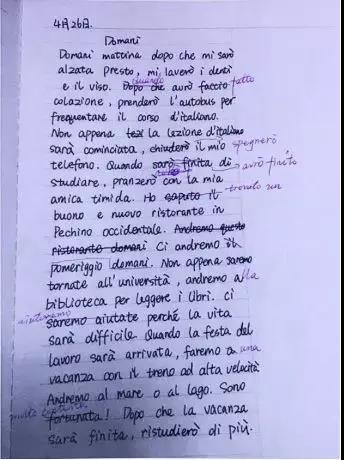 4月26日.
Domani
Domani mattina dopo che mi sarò
alzata presto, mi laverò i denti
quando
e il viso. Dopo che avrò faccio fatto
colazione, prenderò l'autobus per
frequentare il corso d'italiano.
Non appena la lezione d'italiano
sarà cominciata, chiuderò il mio spegnerò
telefono. Quando sarò finita di avrò finito
studiare, pranzerò con la mia
amica timida. Ho saputo il trovato un
buono e nuovo ristorante in
Pechino occidentale. Andremo questo
ristorante domani Ci andremo il
pomeriggio domani. Non appena saremo
tornate all'università, andremo alla
biblioteca per leggere i libri. Ci
aiuteremo
saremo aiutate perché la vita
sarà difficile. Quando la festa del
lavoro sarà arrivata, faremo una
vacanza con il treno ad alta velocità.
Andremo al mare o al lago. Sono
molto contenta
fortunata! Dopo che la vacanza
sarà finita, ristudierò di più.